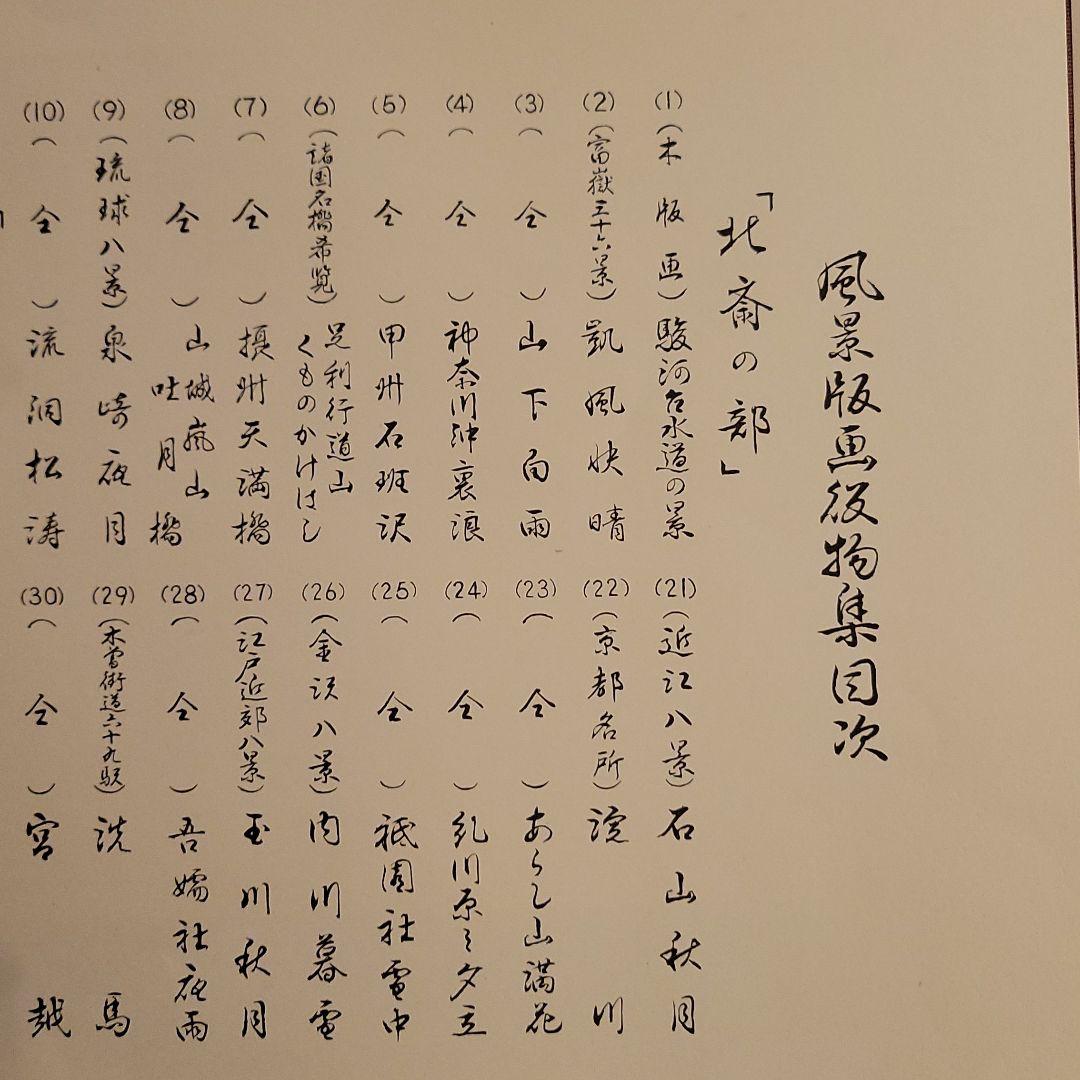 風景版画役物集目次
「北斎の部」
(1)(木版画)駿河台水道の景
(2)(富嶽三十六景)凱風快晴
(3)(仝)山下白雨
(4)(仝)神奈川沖裏浪
(5)(仝)甲州石班沢
(6)(諸国名橋希覧)足利行道山
くものかけはし
(7)(仝)摂州天満橋
(8)(仝)山城嵐山
吐月橋
(9)(琉球八景)泉崎夜月
(10)(仝)流洞松涛
(21)(近江八景)石山秋月
(22)(京都名所)淀川
(23)(仝)あらし山満花
(24)(仝)糺川原之夕立
(25)(仝)祇園社雪中
(26)(金沢八景)内川暮雪
(27)(江戸近郊八景)玉川秋月
(28)(仝)吾嬬社夜雨
(29)(木曽街道六十九駅)洗馬
(30)(仝)宮越